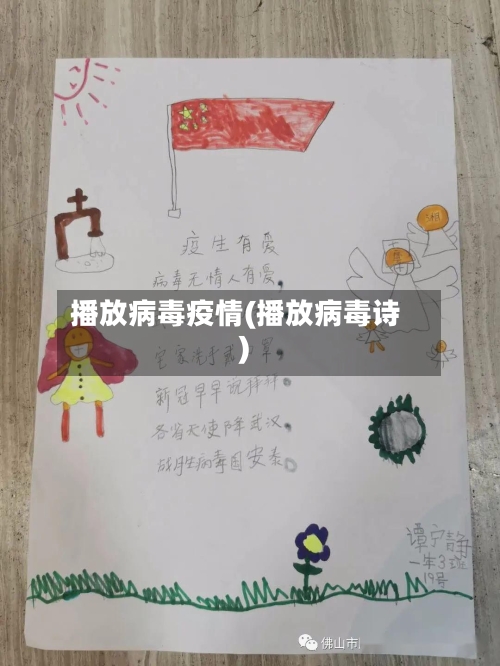 疫生有爱
病毒无情人有爱，
播放病毒疫情(播放病毒诗
)
宅家洗手戴口罩。
新冠早早说拜拜。
各省天使降武汉。
战胜病毒国安泰。
谭宁静
一年3班
19号
佛山市